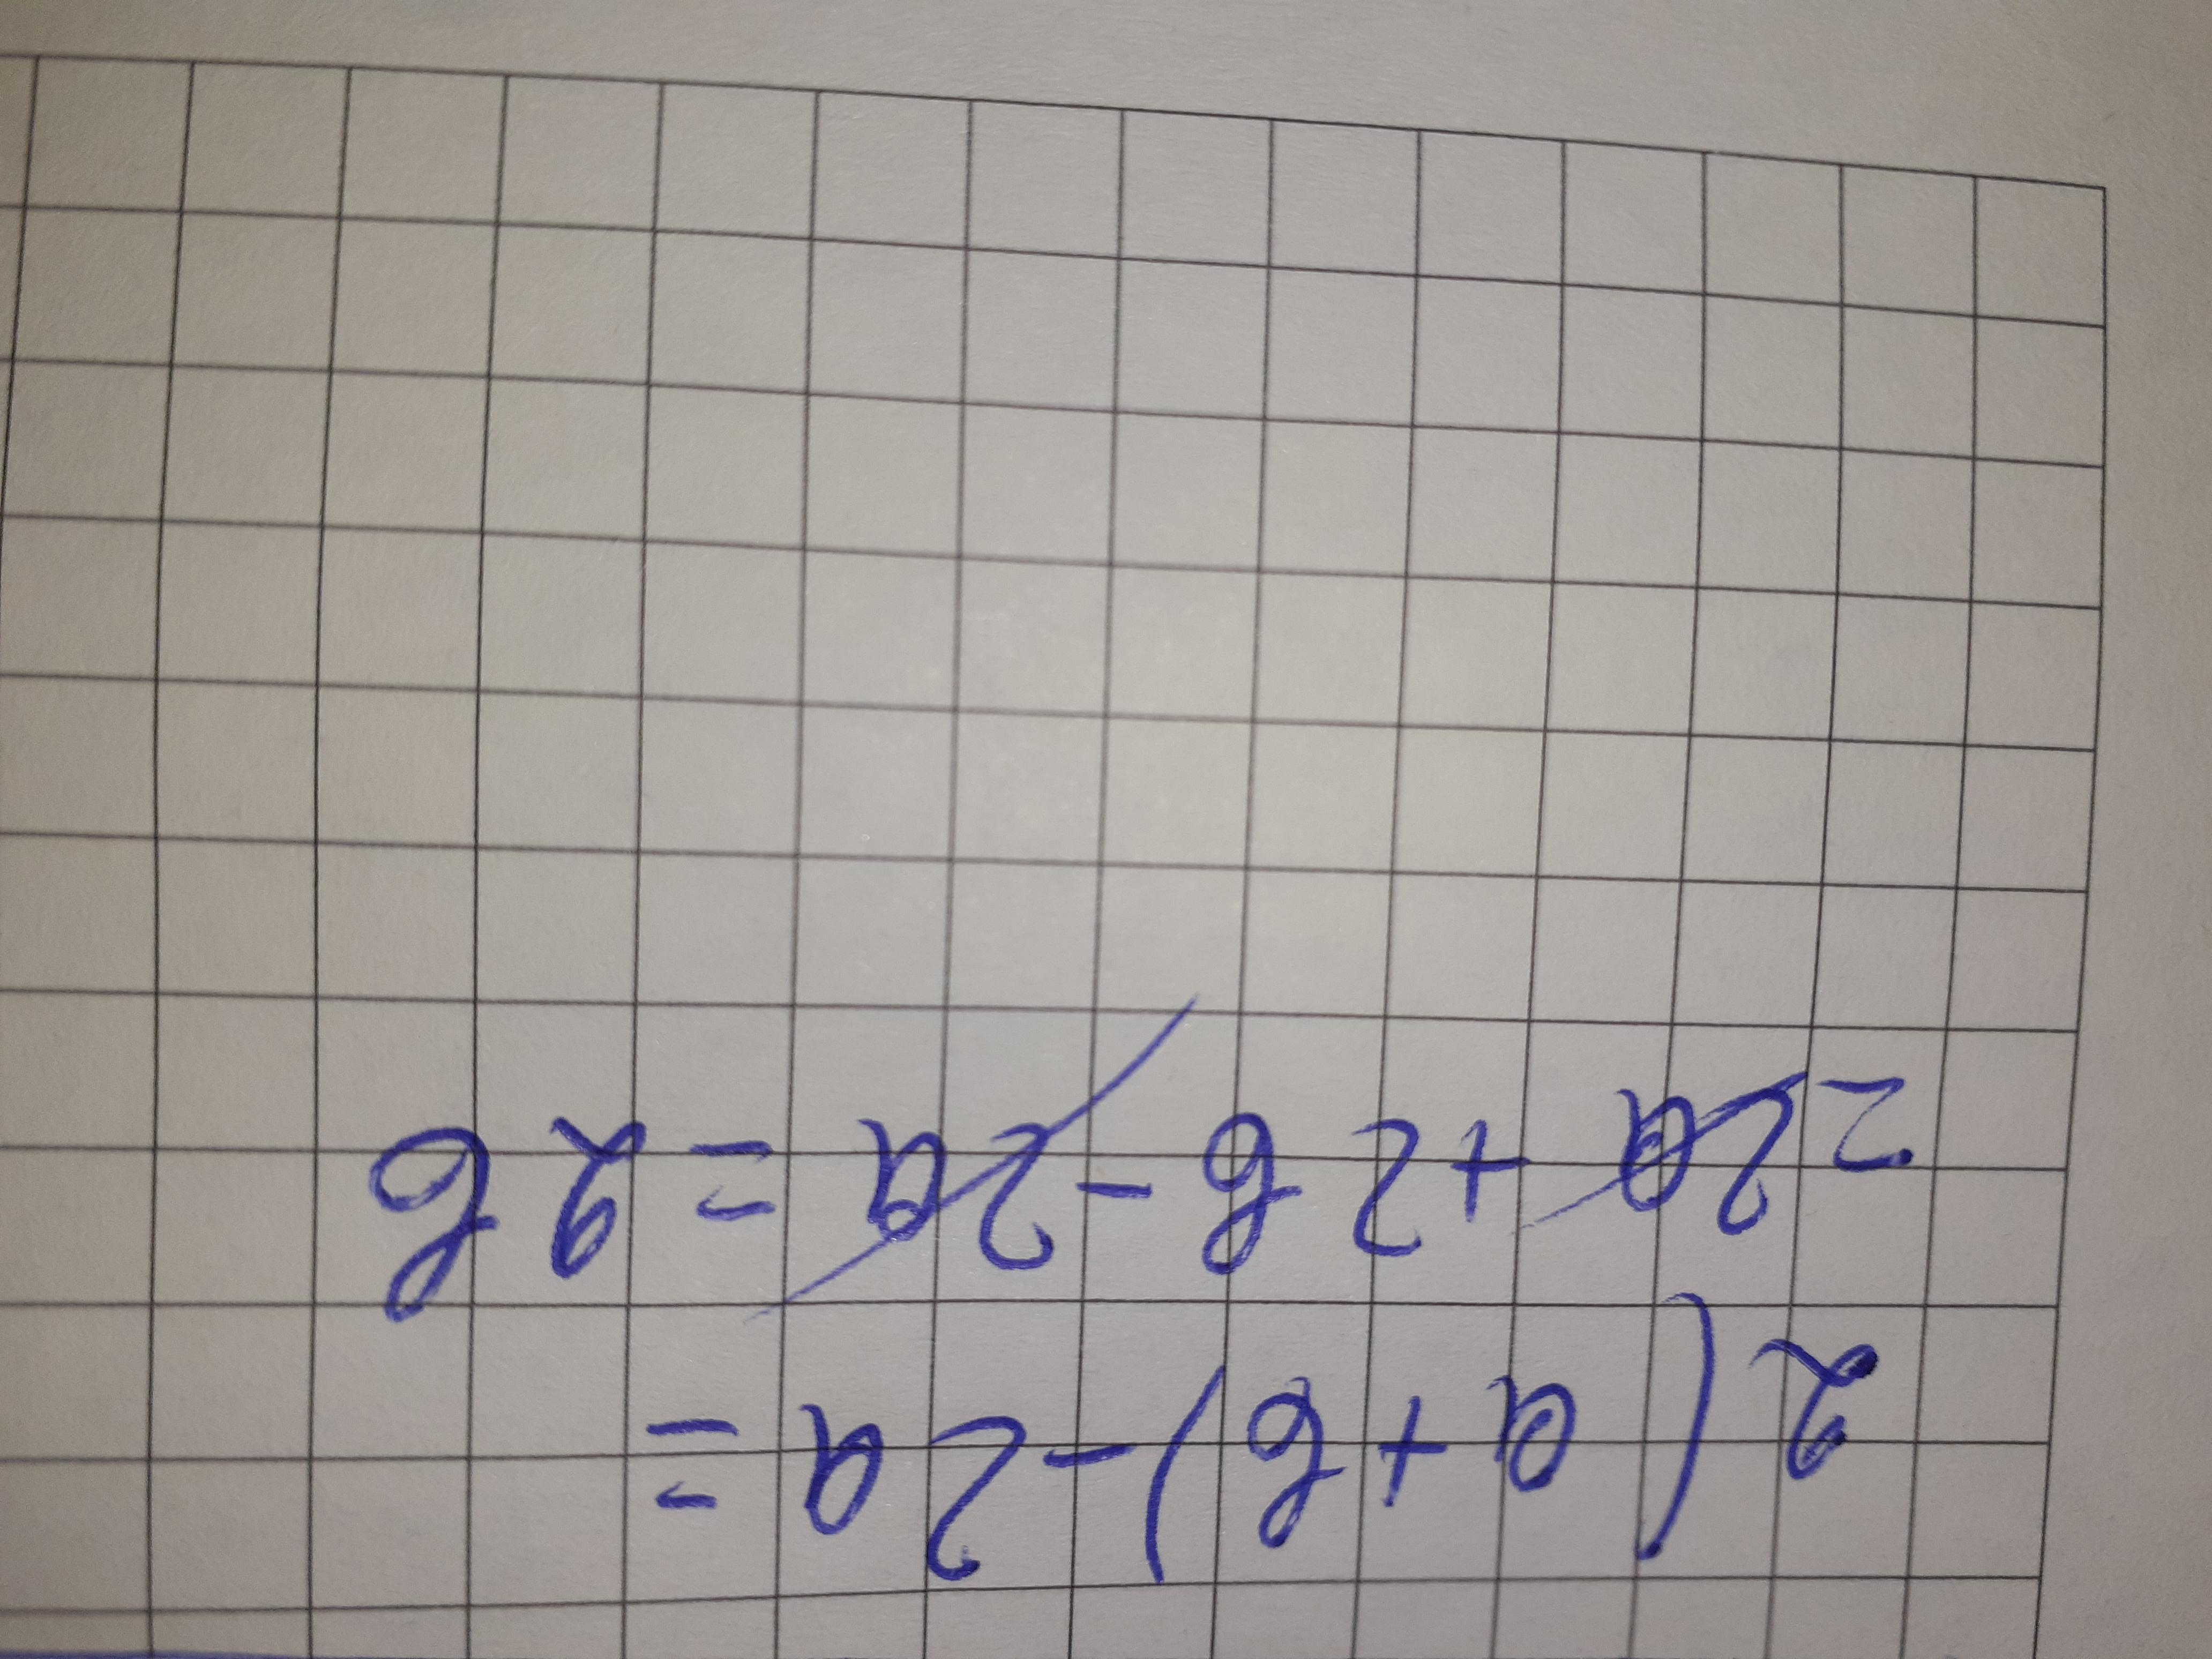 2(a+b)-2a=
=2a+2b-2a=2b